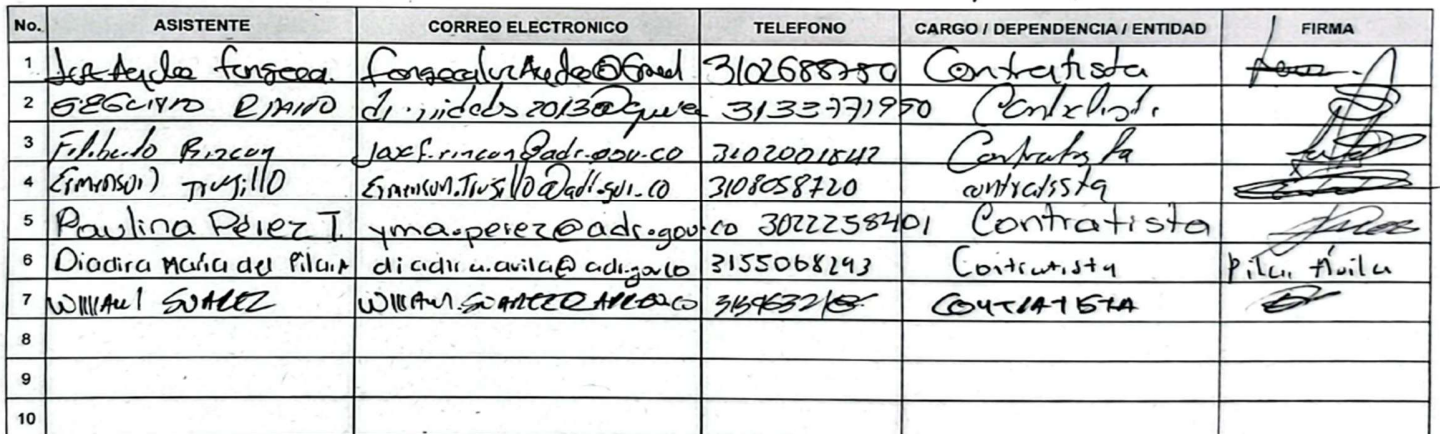 No. ASISTENTE CORREO ELECTRONICO TELEFONO CARGO / DEPENDENCIA / ENTIDAD FIRMA
1 Luz Ayda Fonseca. fonsecaluzAyda@Gmail 3102688750 Contratista
2 3133771950 Contratista
3 Filiberto Rincon jaxf.rincon@adr.gov.co 3102001842 Contratista
4 Ermenson Trujillo Ermenson.Trujillo@adr.gov.co 3108058720 contratista
5 Paulina Pérez T. yma.perez@adr.gov.co 3022258401 Contratista
6 Diadira Maria del Pilar A diadira.avila@adr.gov.co 3155068293 Contratista Pilar Ávila
7 William SUAREZ CONTRATISTA
8
9
10